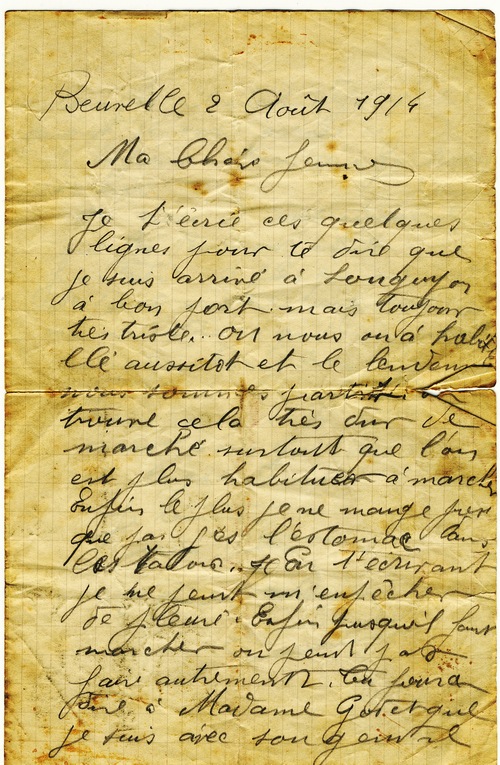 Beuvelle 2 Août 1914
Ma Chère femme
Je t'écrie ces quelques
lignes pour te dire que
je suis arrivé à Longuyon
à bon port mais toujour
très triste.. on nous on à habi
llé aussitot et le lendem
nous sommes parti
trouve cela très dur de
marché surtout que l'on
est plus habituer à marcher
Enfin le plus je ne mange pres
que pas j'es l'estomac dans
les talons.. En t'écrivant
je ne peut m'enpêcher
de pleuré. Enfin puisqu'il faut
marcher on peut pas
faire autrement. tu poura
dire à Madame Gotet que
je suis avec son gendre